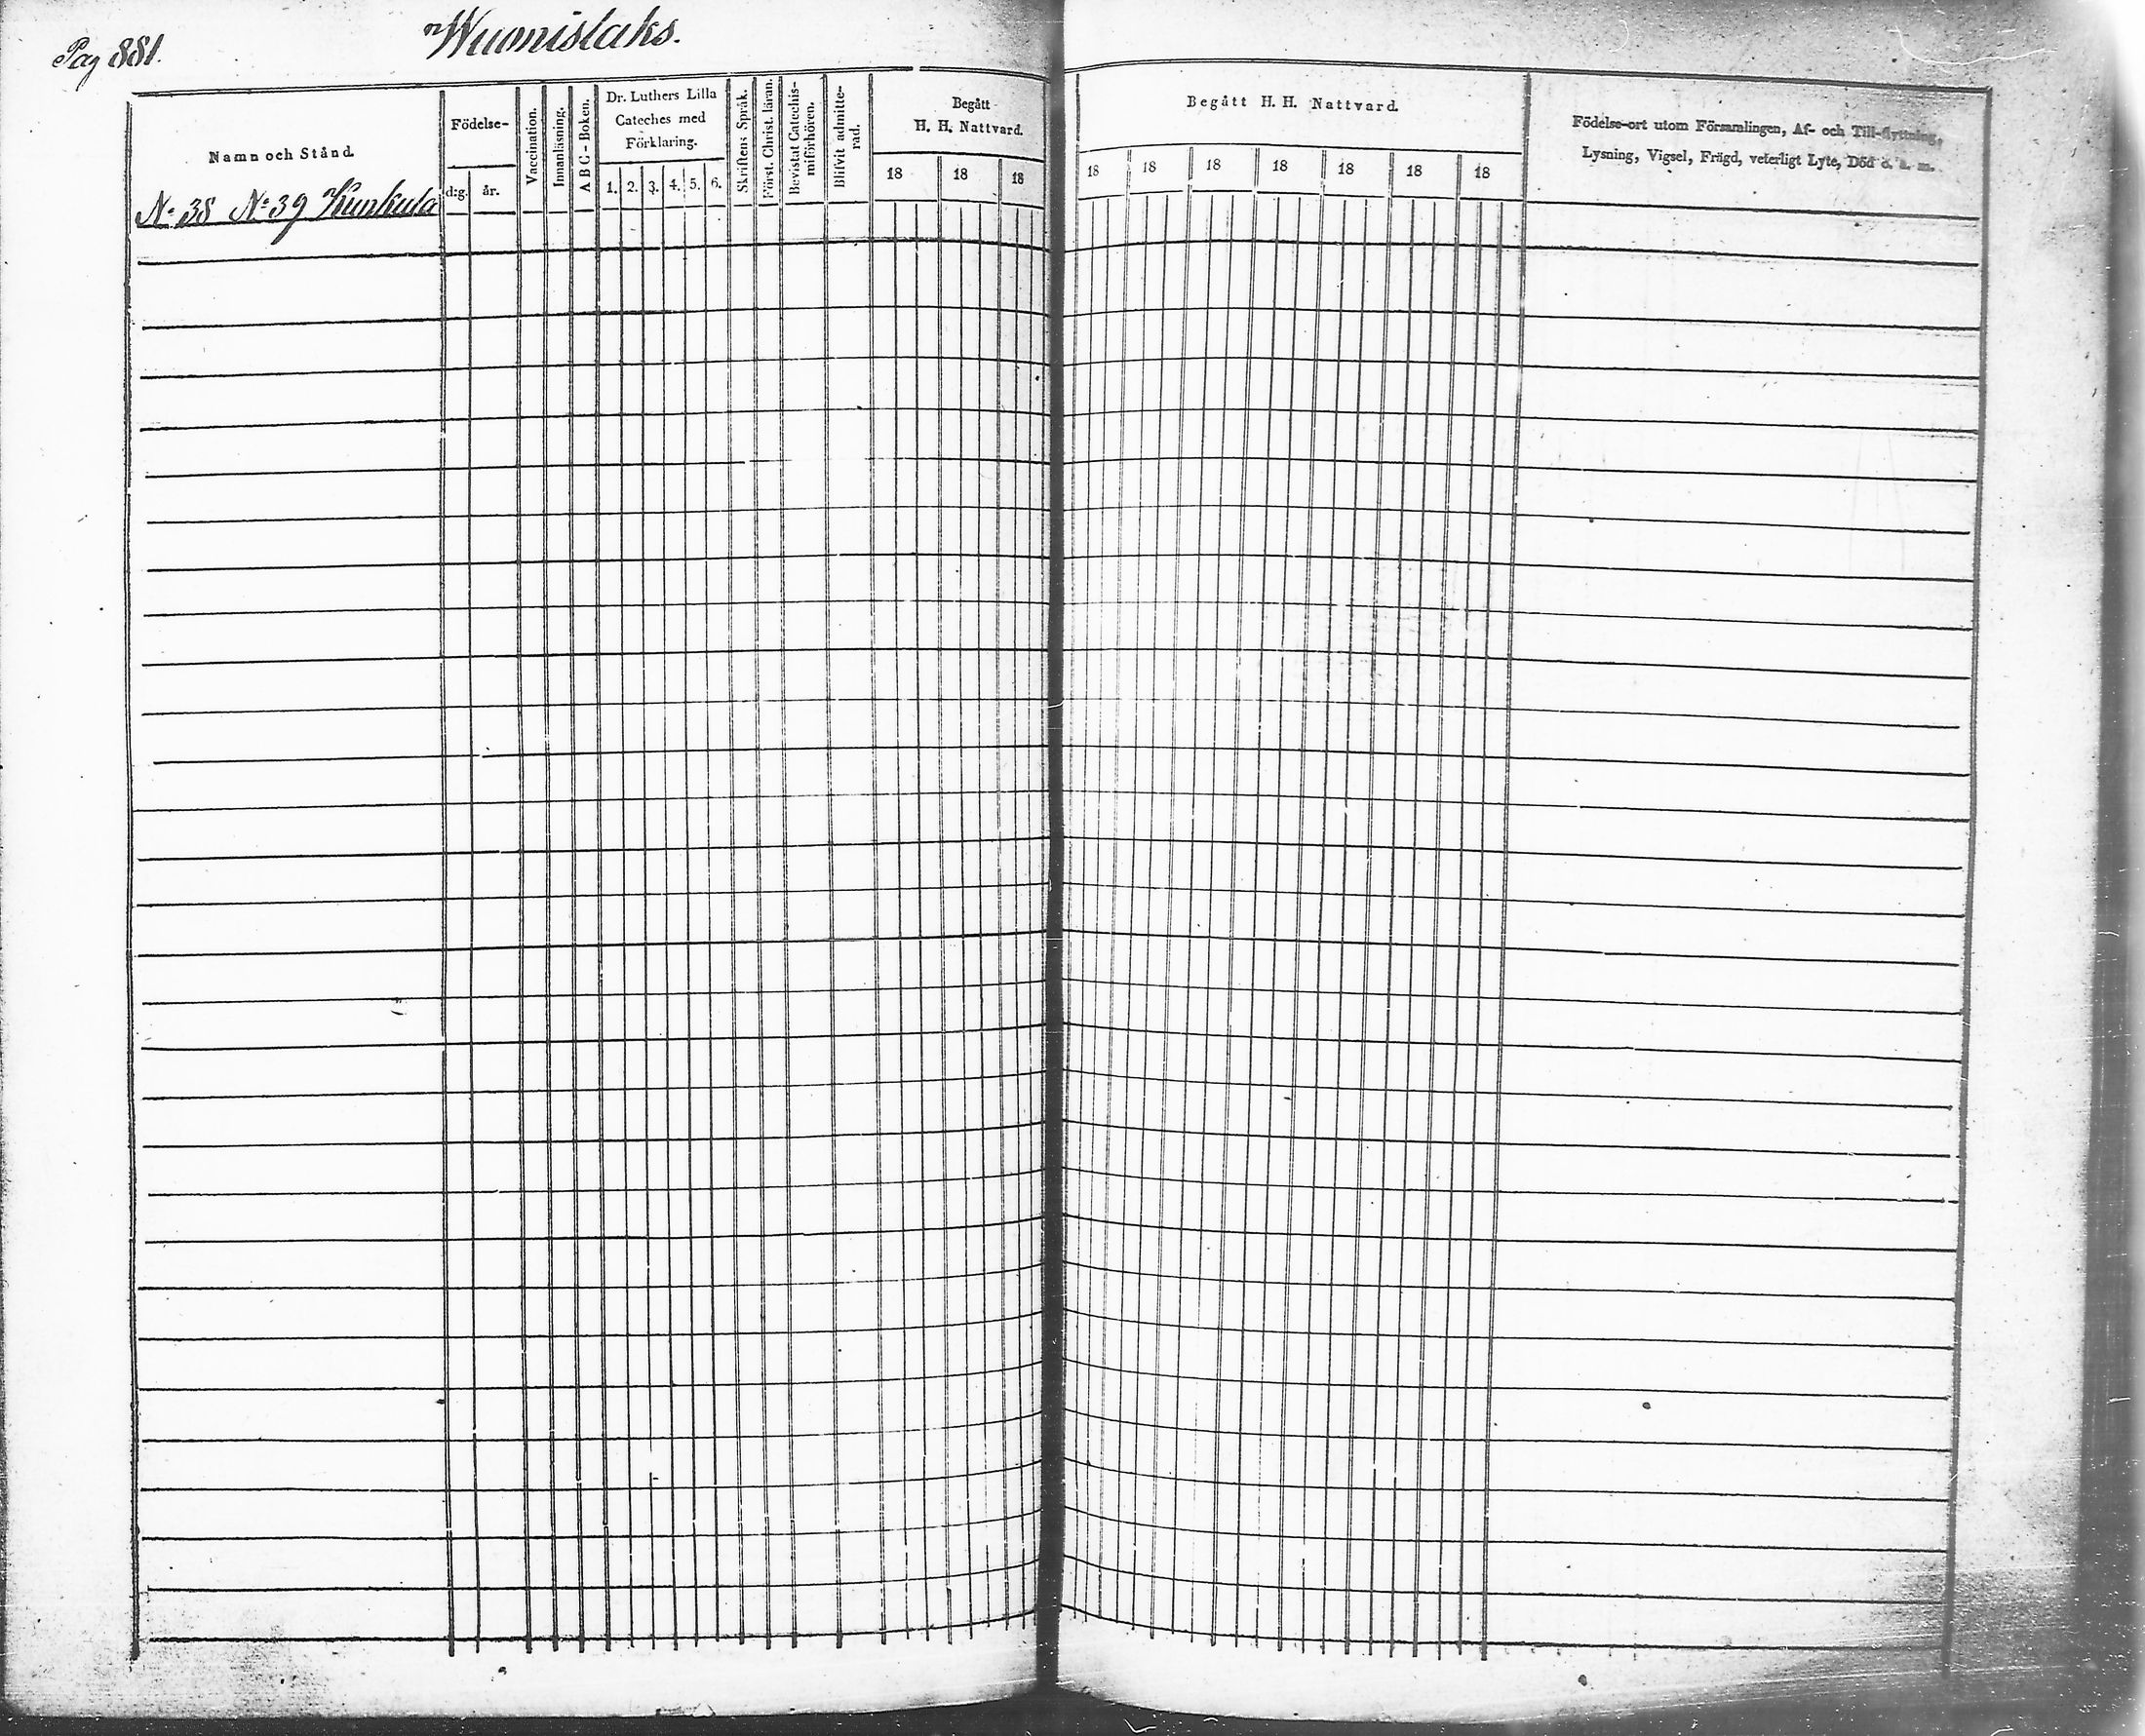 Pag 881.
Wuonislaks.
Namn och Stånd.
Födelse-
d:g.
år.
Vaccination.
Innanläsning.
A B C - Boken.
Dr. Luthers Lilla
Cateches med
Förklaring.
1. 2. 3. 4. 5. 6.
Skriftens Språk.
Först. Christ. läran.
Bevistat Catechis-
miförhören.
Blifvit admitte-
rad.
Begått
H. H. Nattvard.
18 18 18
N: 38 N: 39
Begått H. H. Nattvard.
18 18 18 18 18 18 18
Födelse-ort utom Församlingen, Af- och Till-flyttning,
Lysning, Vigsel, Frägd, veterligt Lyte, Död o. a. m.